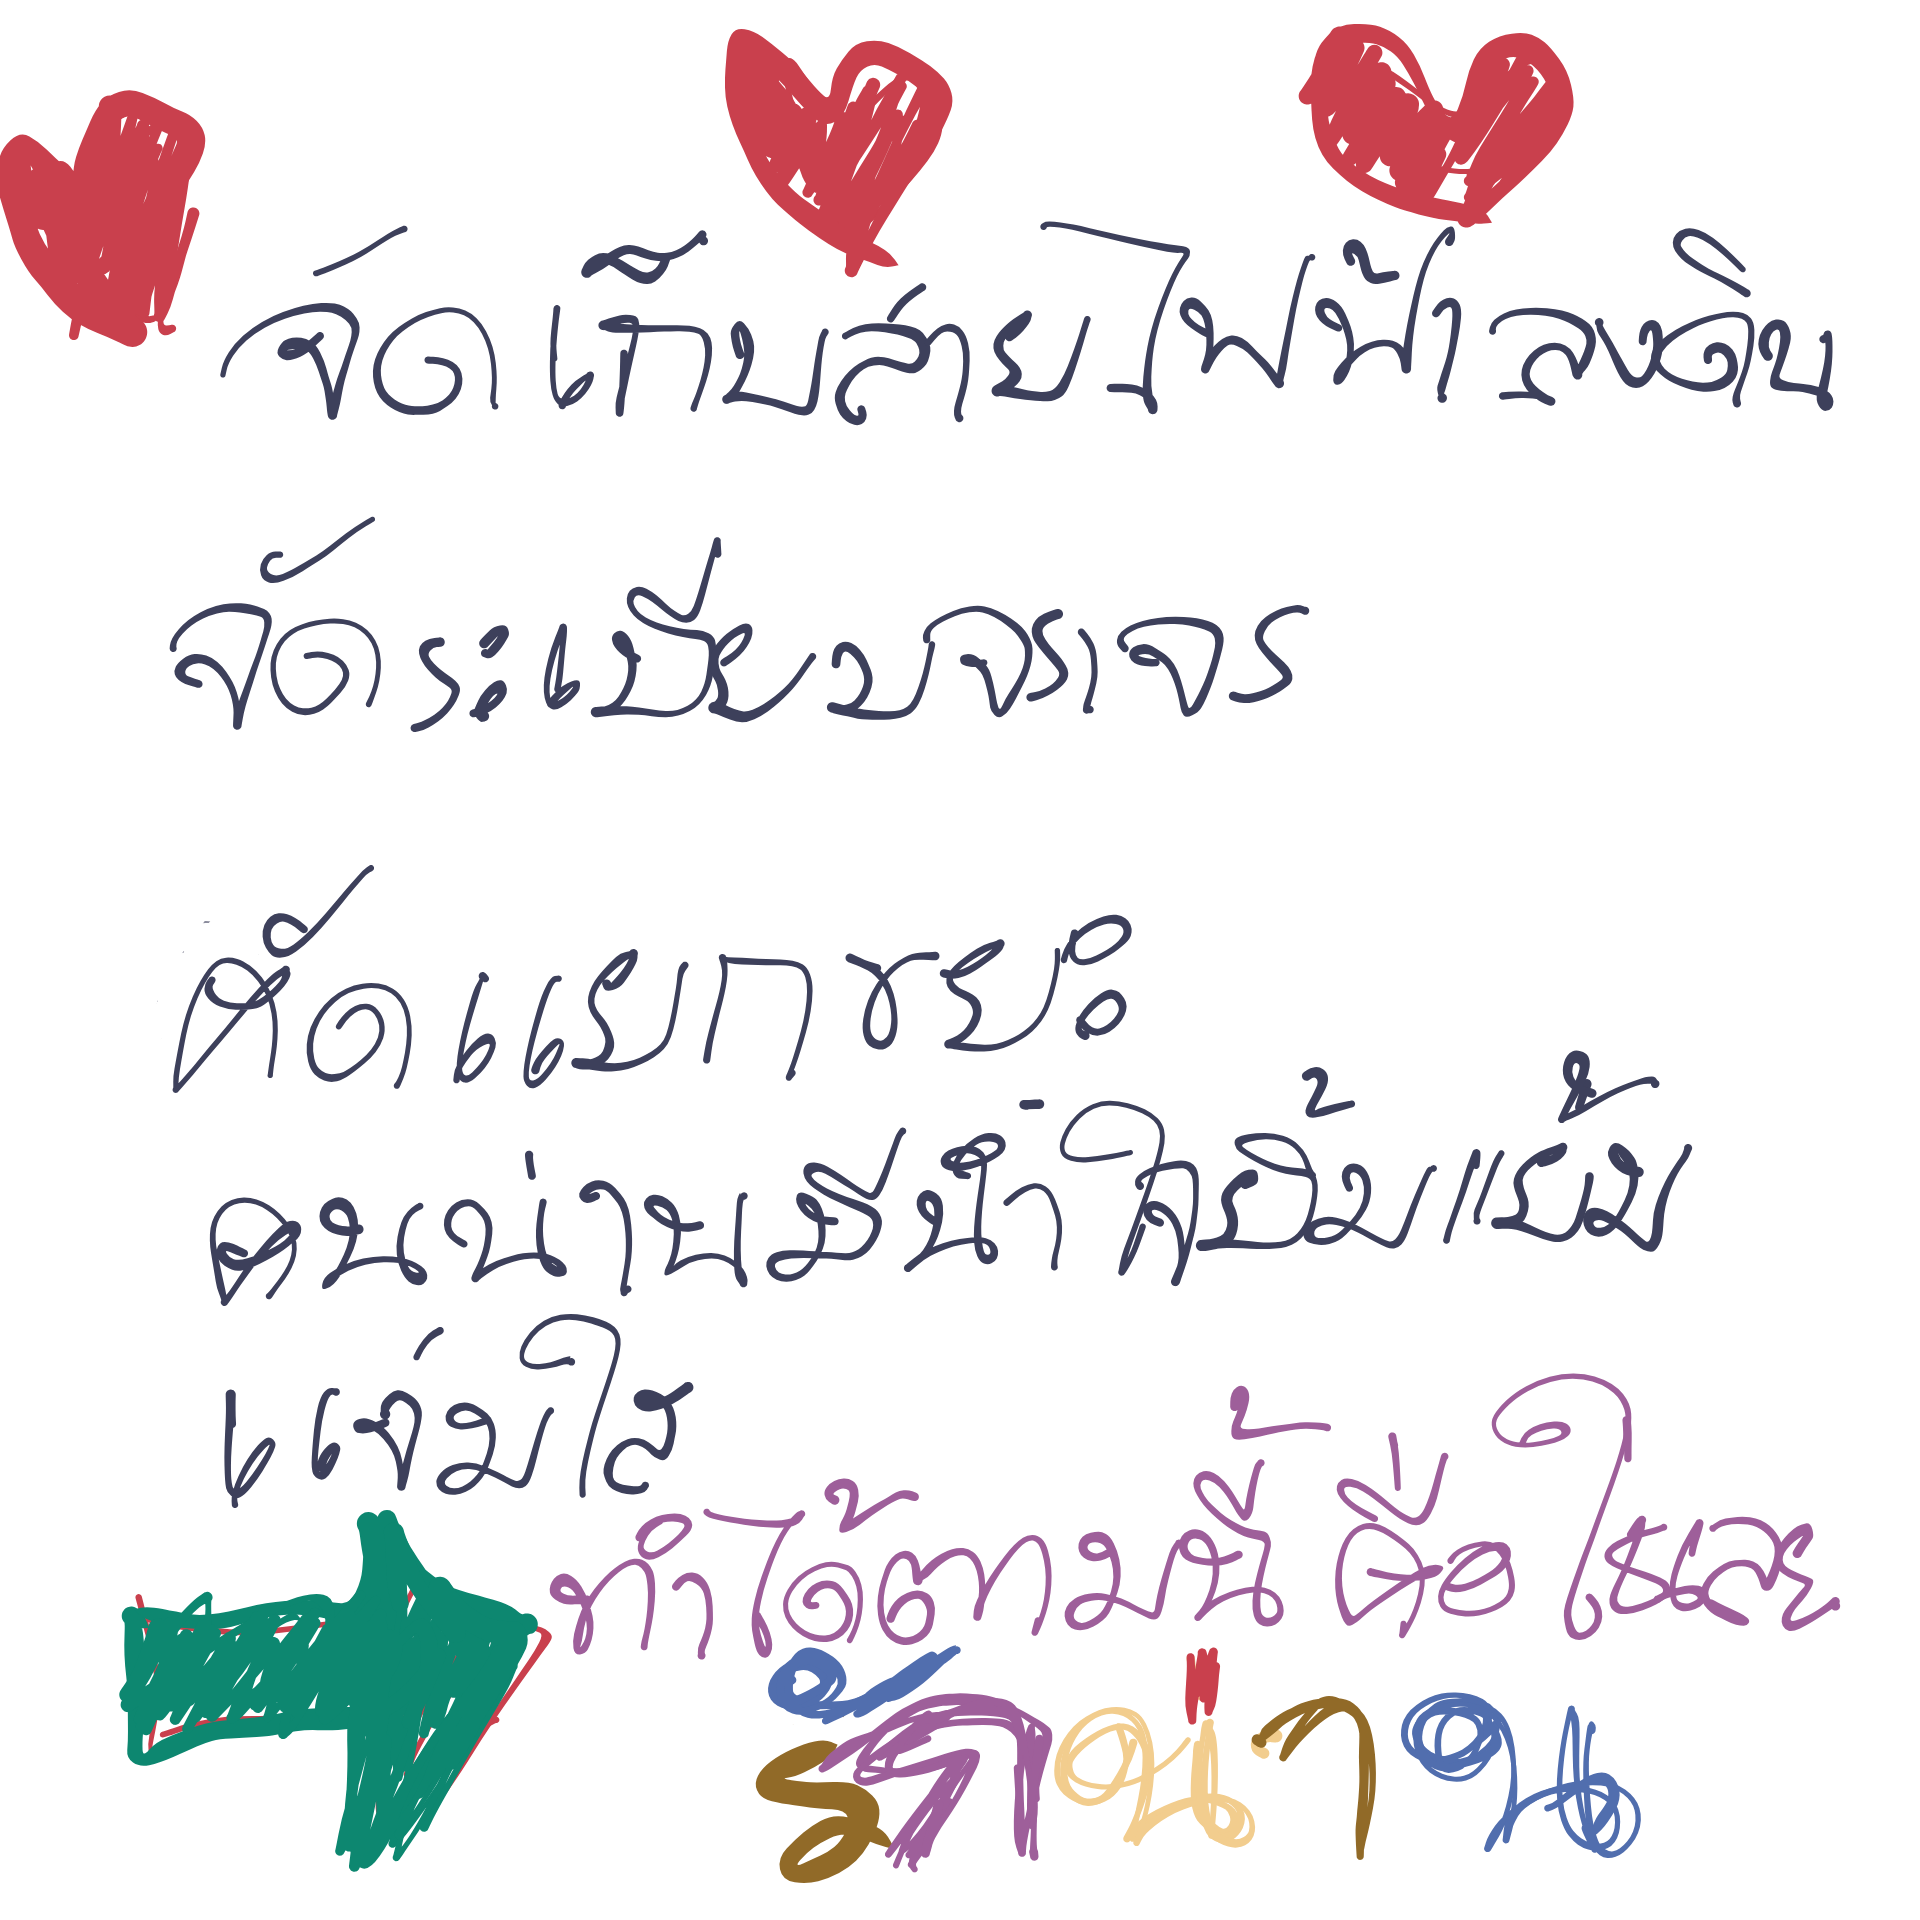 จัดเก็บสายไฟฟ้าลงดิน
จัดระเบียบจราจร
คัดแยกขยะ
คนน่านมีน้ำใจยิ้มแย้ม
แจ่มใส
ทำได้ตามนี้คือใช่เลย
รักน่าน